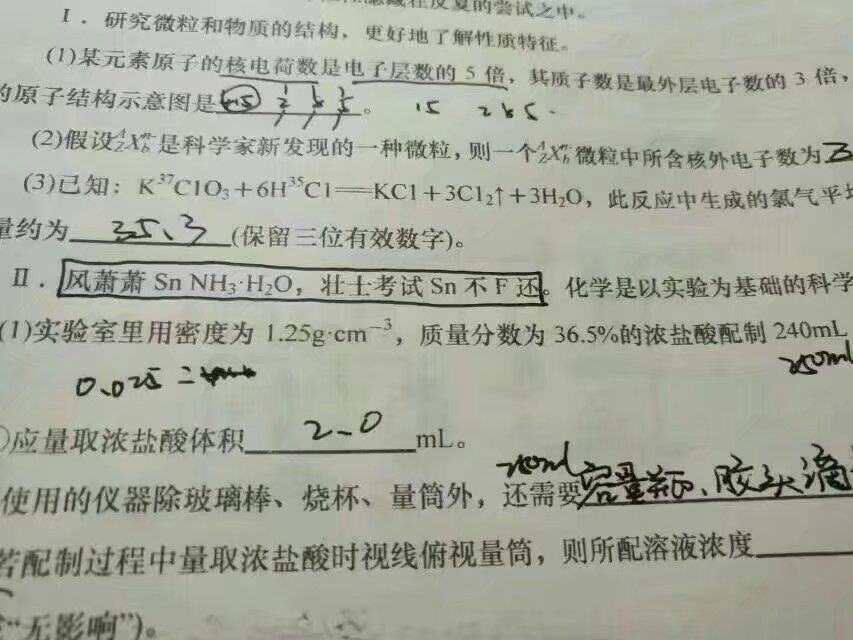 藏在反复的尝试之中。
Ⅰ．研究微粒和物质的结构，更好地了解性质特征。
(1)某元素原子的核电荷数是电子层数的 5 倍，其质子数是最外层电子数的 3 倍，
的原子结构示意图是 +15 2 8 5 。 15 2 8 5
(2)假设 A Z X n- b 是科学家新发现的一种微粒，则一个 A Z X n- b 微粒中所含核外电子数为 Z
(3)已知：K³⁷ClO₃+6H³⁵Cl══KCl+3Cl₂↑+3H₂O，此反应中生成的氯气平均
量约为 35.3 (保留三位有效数字)。
Ⅱ．风萧萧 Sn NH₃·H₂O，壮士考试 Sn 不 F 还。化学是以实验为基础的科学
(1)实验室里用密度为 1.25g·cm⁻³，质量分数为 36.5%的浓盐酸配制 240mL
250ml
0.025 =
应量取浓盐酸体积 2.0 mL。
250ml
使用的仪器除玻璃棒、烧杯、量筒外，还需要容量瓶、胶头滴
若配制过程中量取浓盐酸时视线俯视量筒，则所配溶液浓度
“无影响”)。